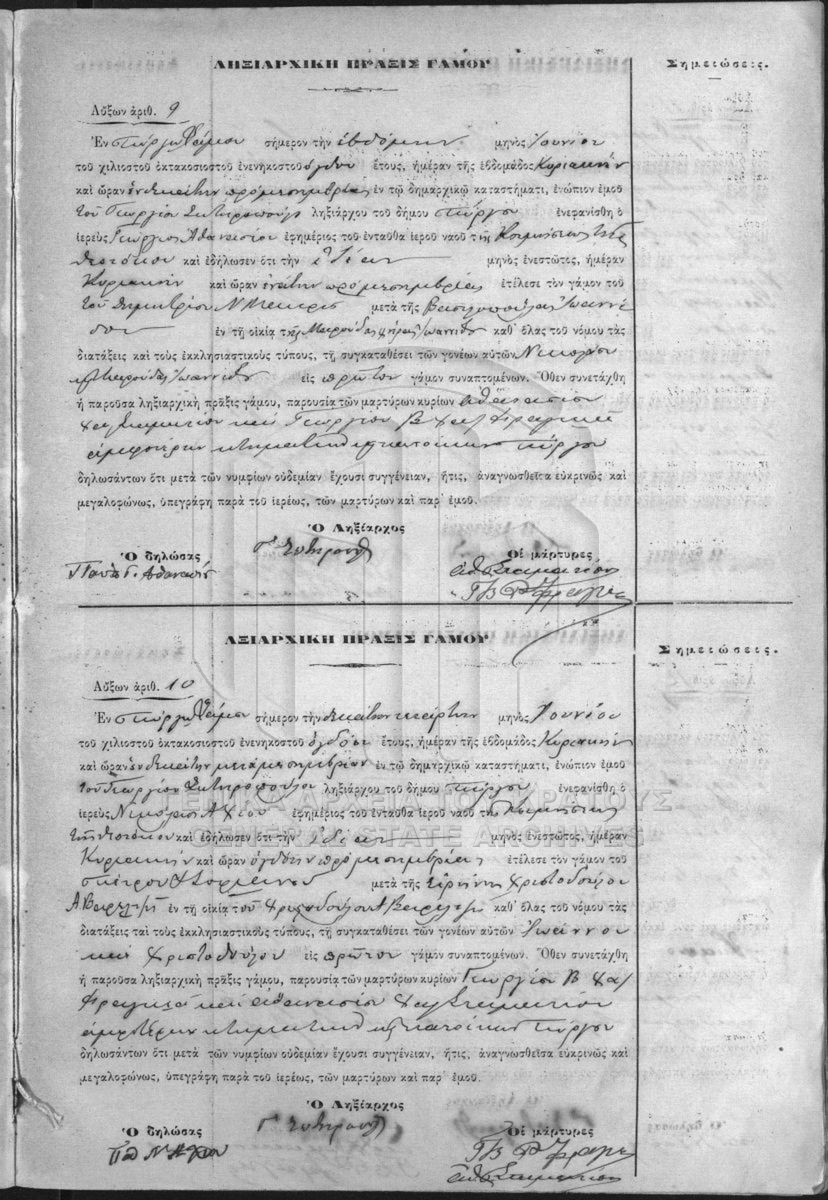 ΛΗΞΙΑΡΧΙΚΗ ΠΡΑΞΙΣ ΓΑΜΟΥ
Σημειώσεις.
Αὔξων ἀριθ. 9
Ἐν Πύργῳ σήμερον τὴν ἑβδόμην μηνὸς Ἰουνίου
τοῦ χιλιοστοῦ ὀκτακοσιοστοῦ ἐνενηκοστοῦ ὀγδόου ἔτους, ἡμέραν τῆς ἑβδομάδος Κυριακὴν
καὶ ὥραν ἑνδεκάτην πρὸ μεσημβρίας ἐν τῷ δημαρχικῷ καταστήματι, ἐνώπιον ἐμοῦ
τοῦ Γεωργίου Σωτηροπούλου ληξιάρχου τοῦ δήμου Πύργου ἐνεφανίσθη ὁ
ἱερεὺς Γεώργιος Ἀθανασίου ἐφημέριος τοῦ ἐνταῦθα ἱεροῦ ναοῦ τῆς Κοιμήσεως τῆς
Θεοτόκου καὶ ἐδήλωσεν ὅτι τὴν ἰδίαν μηνὸς ἐνεστῶτος, ἡμέραν
Κυριακὴν καὶ ὥραν ἐνάτην πρὸ μεσημβρίας ἐτέλεσε τὸν γάμον τοῦ
τοῦ Δημητρίου Ν μετὰ τῆς Βασιλοπούλας Ἰωάννι
δου ἐν τῇ οἰκίᾳ τῆς Μαρούδας χήρας Ἰωαννίδου καθ' ὅλας τοῦ νόμου τὰς
διατάξεις καὶ τοὺς ἐκκλησιαστικοὺς τύπους, τῇ συγκαταθέσει τῶν γονέων αὐτῶν Νικολάου
Μαρούδας Ἰωαννίδου εἰς πρῶτον γάμον συναπτομένων. Ὅθεν συνετάχθη
ἡ παροῦσα ληξιαρχικὴ πρᾶξις γάμου, παρουσίᾳ τῶν μαρτύρων κυρίων Ἀθανασίου
Χ΄΄ Σταματίου καὶ Γεωργίου Β Χ΄΄
ἀμφοτέρων κτηματικῶν κατοίκων Πύργου
δηλωσάντων ὅτι μετὰ τῶν νυμφίων οὐδεμίαν ἔχουσι συγγένειαν, ἥτις, ἀναγνωσθεῖσα εὐκρινῶς καὶ
μεγαλοφώνως, ὑπεγράφη παρὰ τοῦ ἱερέως, τῶν μαρτύρων καὶ παρ' ἐμοῦ.
Ὁ Ληξίαρχος
Γ. Σωτηροπ
Ὁ δηλώσας
Οἱ μάρτυρες
Παπᾶ Γ. Ἀθανασίου
Ἀθ Σταματίου
ΛΞΙΑΡΧΙΚΗ ΠΡΑΞΙΣ ΓΑΜΟΥ
Σημειώσεις.
Αὔξων ἀριθ. 10
Ἐν Πύργῳ σήμερον τὴν δεκάτην τετάρτην μηνὸς Ἰουνίου
τοῦ χιλιοστοῦ ὀκτακοσιοστοῦ ἐνενηκοστοῦ ὀγδόου ἔτους, ἡμέραν τῆς ἑβδομάδος Κυριακὴν
καὶ ὥραν ἑνδεκάτην μετὰ μεσημβρίαν ἐν τῷ δημαρχικῷ καταστήματι, ἐνώπιον ἐμοῦ
τοῦ Γεωργίου Σωτηροπούλου ληξιάρχου τοῦ δήμου Πύργου ἐνεφανίσθη ὁ
ἱερεὺς Νικόλαος ἐφημέριος τοῦ ἐνταῦθα ἱεροῦ ναοῦ τῆς Κοιμήσεως
τῆς Θεοτόκου καὶ ἐδήλωσεν ὅτι τὴν ἰδίαν μηνὸς ἐνεστῶτος, ἡμέραν
Κυριακὴν καὶ ὥραν ὀγδόην πρὸ μεσημβρίας ἐτέλεσε τὸν γάμον τοῦ
μετὰ τῆς Εἰρήνης Χριστοδούλου
ἐν τῇ οἰκίᾳ τοῦ Χριστοδούλου καθ' ὅλας τοῦ νόμου τὰς
διατάξεις ταὶ τοὺς ἐκκλησιαστικοὺς τύπους, τῇ συγκαταθέσει τῶν γονέων αὐτῶν Ἰωάννου
καὶ Χριστοδούλου εἰς πρῶτον γάμον συναπτομένων. Ὅθεν συνετάχθη
ἡ παροῦσα ληξιαρχικὴ πρᾶξις γάμου, παρουσίᾳ τῶν μαρτύρων κυρίων Γεωργίου Β Χ΄΄
καὶ Ἀθανασίου Χ΄΄ Σταματίου
ἀμφοτέρων κτηματικῶν κατοίκων Πύργου
δηλωσάντων ὅτι μετὰ τῶν νυμφίων οὐδεμίαν ἔχουσι συγγένειαν, ἥτις, ἀναγνωσθεῖσα εὐκρινῶς καὶ
μεγαλοφώνως, ὑπεγράφη παρὰ τοῦ ἱερέως, τῶν μαρτύρων καὶ παρ' ἐμοῦ.
Ὁ Ληξίαρχος
Γ. Σωτηροπ
Ὁ δηλώσας
Οἱ μάρτυρες
Ἀθ Σταματίου
ΓΕΝΙΚΑ ΑΡΧΕΙΑ ΤΟΥ ΚΡΑΤΟΥΣ
GENERAL STATE ARCHIVES